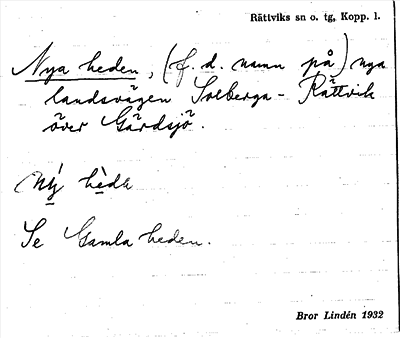 Rättviks sn o. tg, Kopp. l.
Nya heden, (f. d. namn på) nya
landsvägen Solberga - Rättvik
över Gärdsjö.
Se Gamla heden.
Bror Lindén 1932